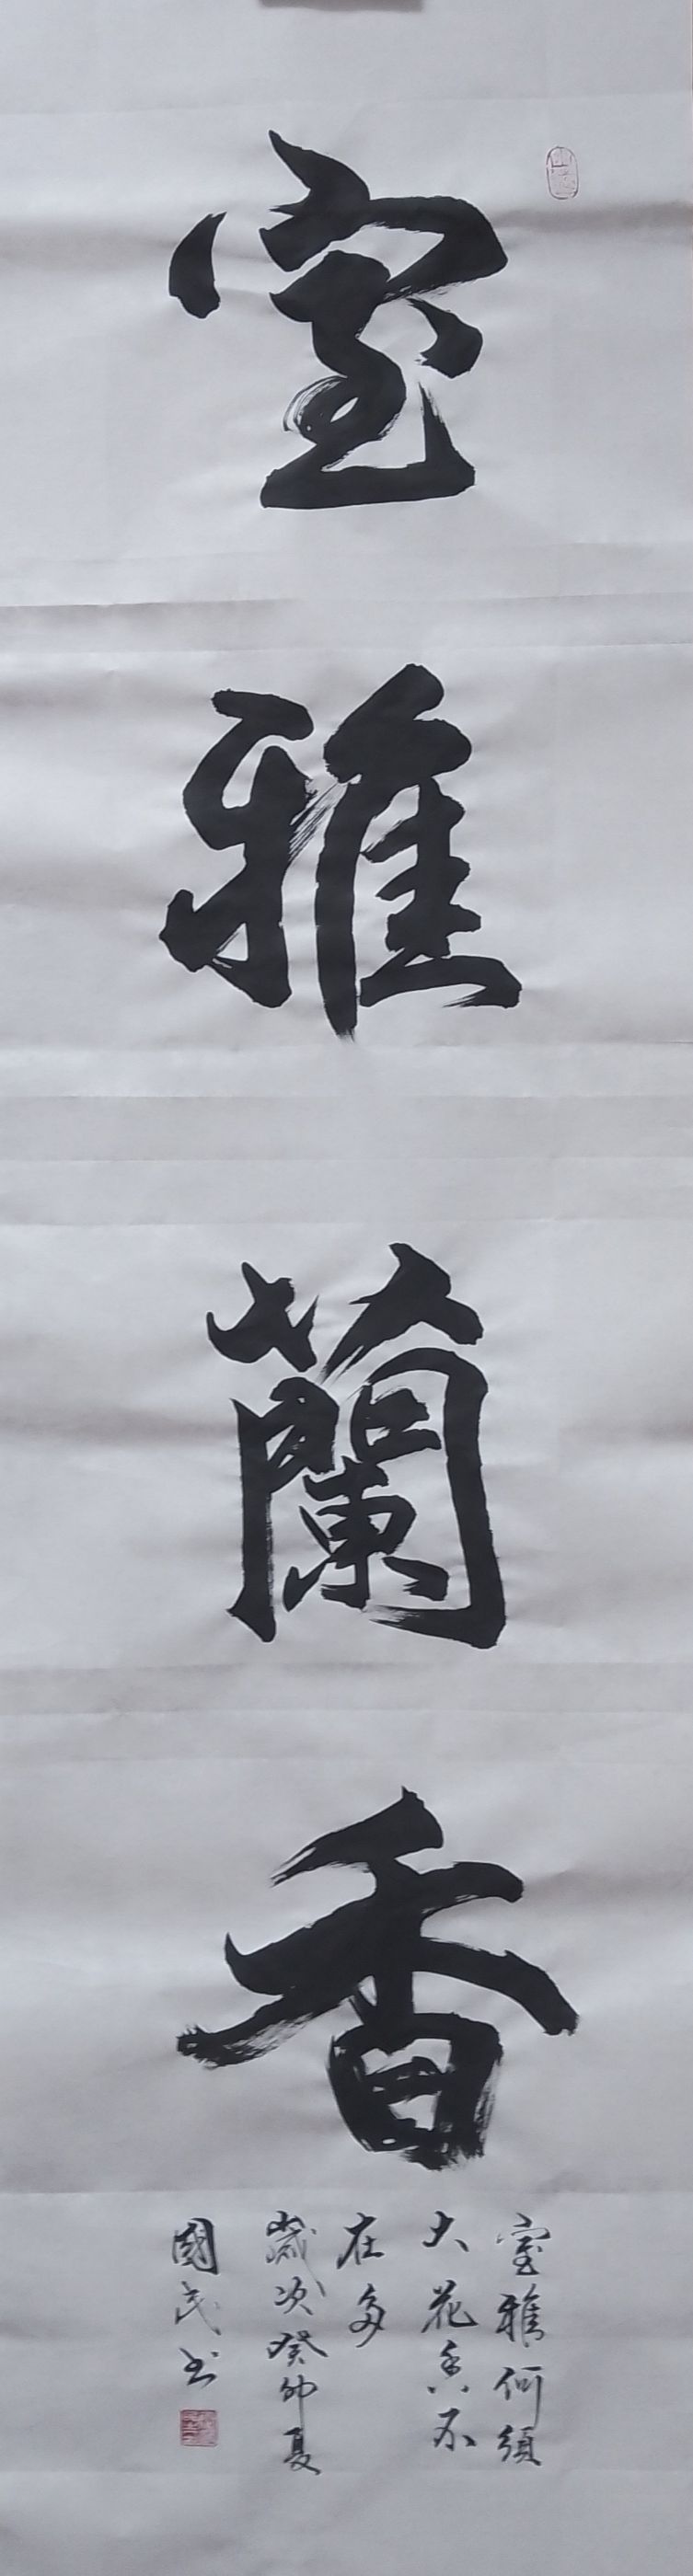 室雅蘭香
室雅何須
大花香不
在多
歲次癸卯夏
國民书